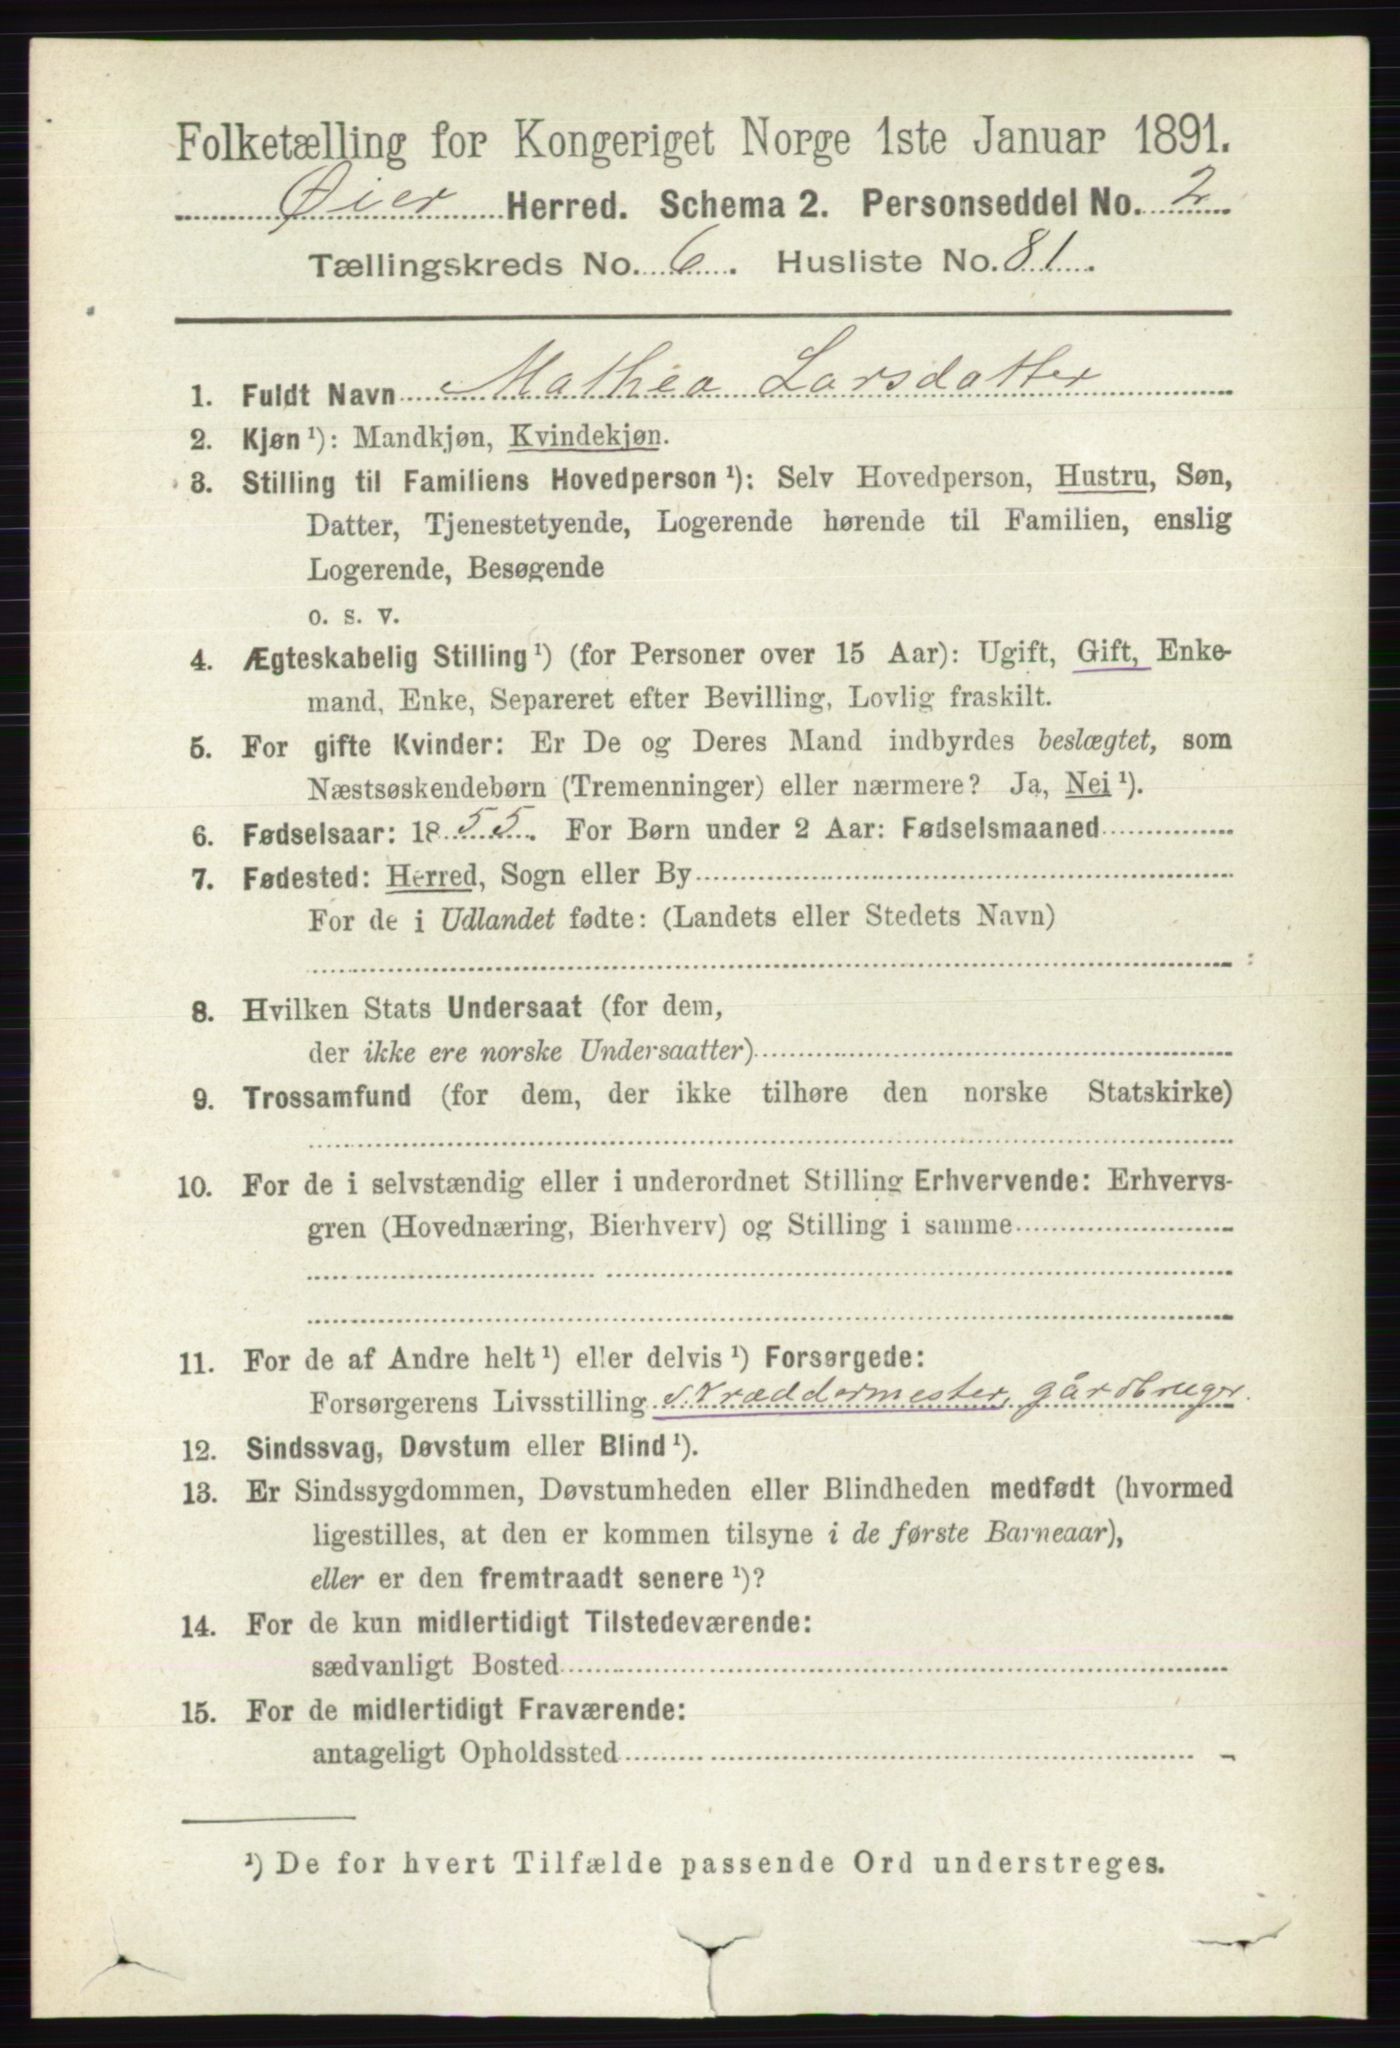 Folketælling for Kongeriget Norge 1ste Januar 1891.
Øier Herred. Schema 2. Personseddel No. 2
Tællingskreds No. 6. Husliste No. 81.
1. Fuldt Navn Mathea Larsdatter
2. Kjøn ¹): Mandkjøn, Kvindekjøn.
3. Stilling til Familiens Hovedperson ¹): Selv Hovedperson, Hustru, Søn,
Datter, Tjenestetyende, Logerende hørende til Familien, enslig
Logerende, Besøgende
o. s. v.
4. Ægteskabelig Stilling ¹) (for Personer over 15 Aar): Ugift, Gift, Enke-
mand, Enke, Separeret efter Bevilling, Lovlig fraskilt.
5. For gifte Kvinder: Er De og Deres Mand indbyrdes beslægtet, som
Næstsøskendebørn (Tremenninger) eller nærmere? Ja, Nei ¹).
6. Fødselsaar: 1855. For Børn under 2 Aar: Fødselsmaaned
7. Fødested: Herred, Sogn eller By
For de i Udlandet fødte: (Landets eller Stedets Navn)
8. Hvilken Stats Undersaat (for dem,
der ikke ere norske Undersaatter)
9. Trossamfund (for dem, der ikke tilhøre den norske Statskirke)
10. For de i selvstændig eller i underordnet Stilling Erhvervende: Erhvervs-
gren (Hovednæring, Bierhverv) og Stilling i samme
11. For de af Andre helt ¹) eller delvis ¹) Forsørgede:
Forsørgerens Livsstilling skræddermester, gårdbruger.
12. Sindssvag, Døvstum eller Blind ¹).
13. Er Sindssygdommen, Døvstumheden eller Blindheden medfødt (hvormed
ligestilles, at den er kommen tilsyne i de første Barneaar),
eller er den fremtraadt senere ¹)?
14. For de kun midlertidigt Tilstedeværende:
sædvanligt Bosted
15. For de midlertidigt Fraværende:
antageligt Opholdssted
¹) De for hvert Tilfælde passende Ord understreges.